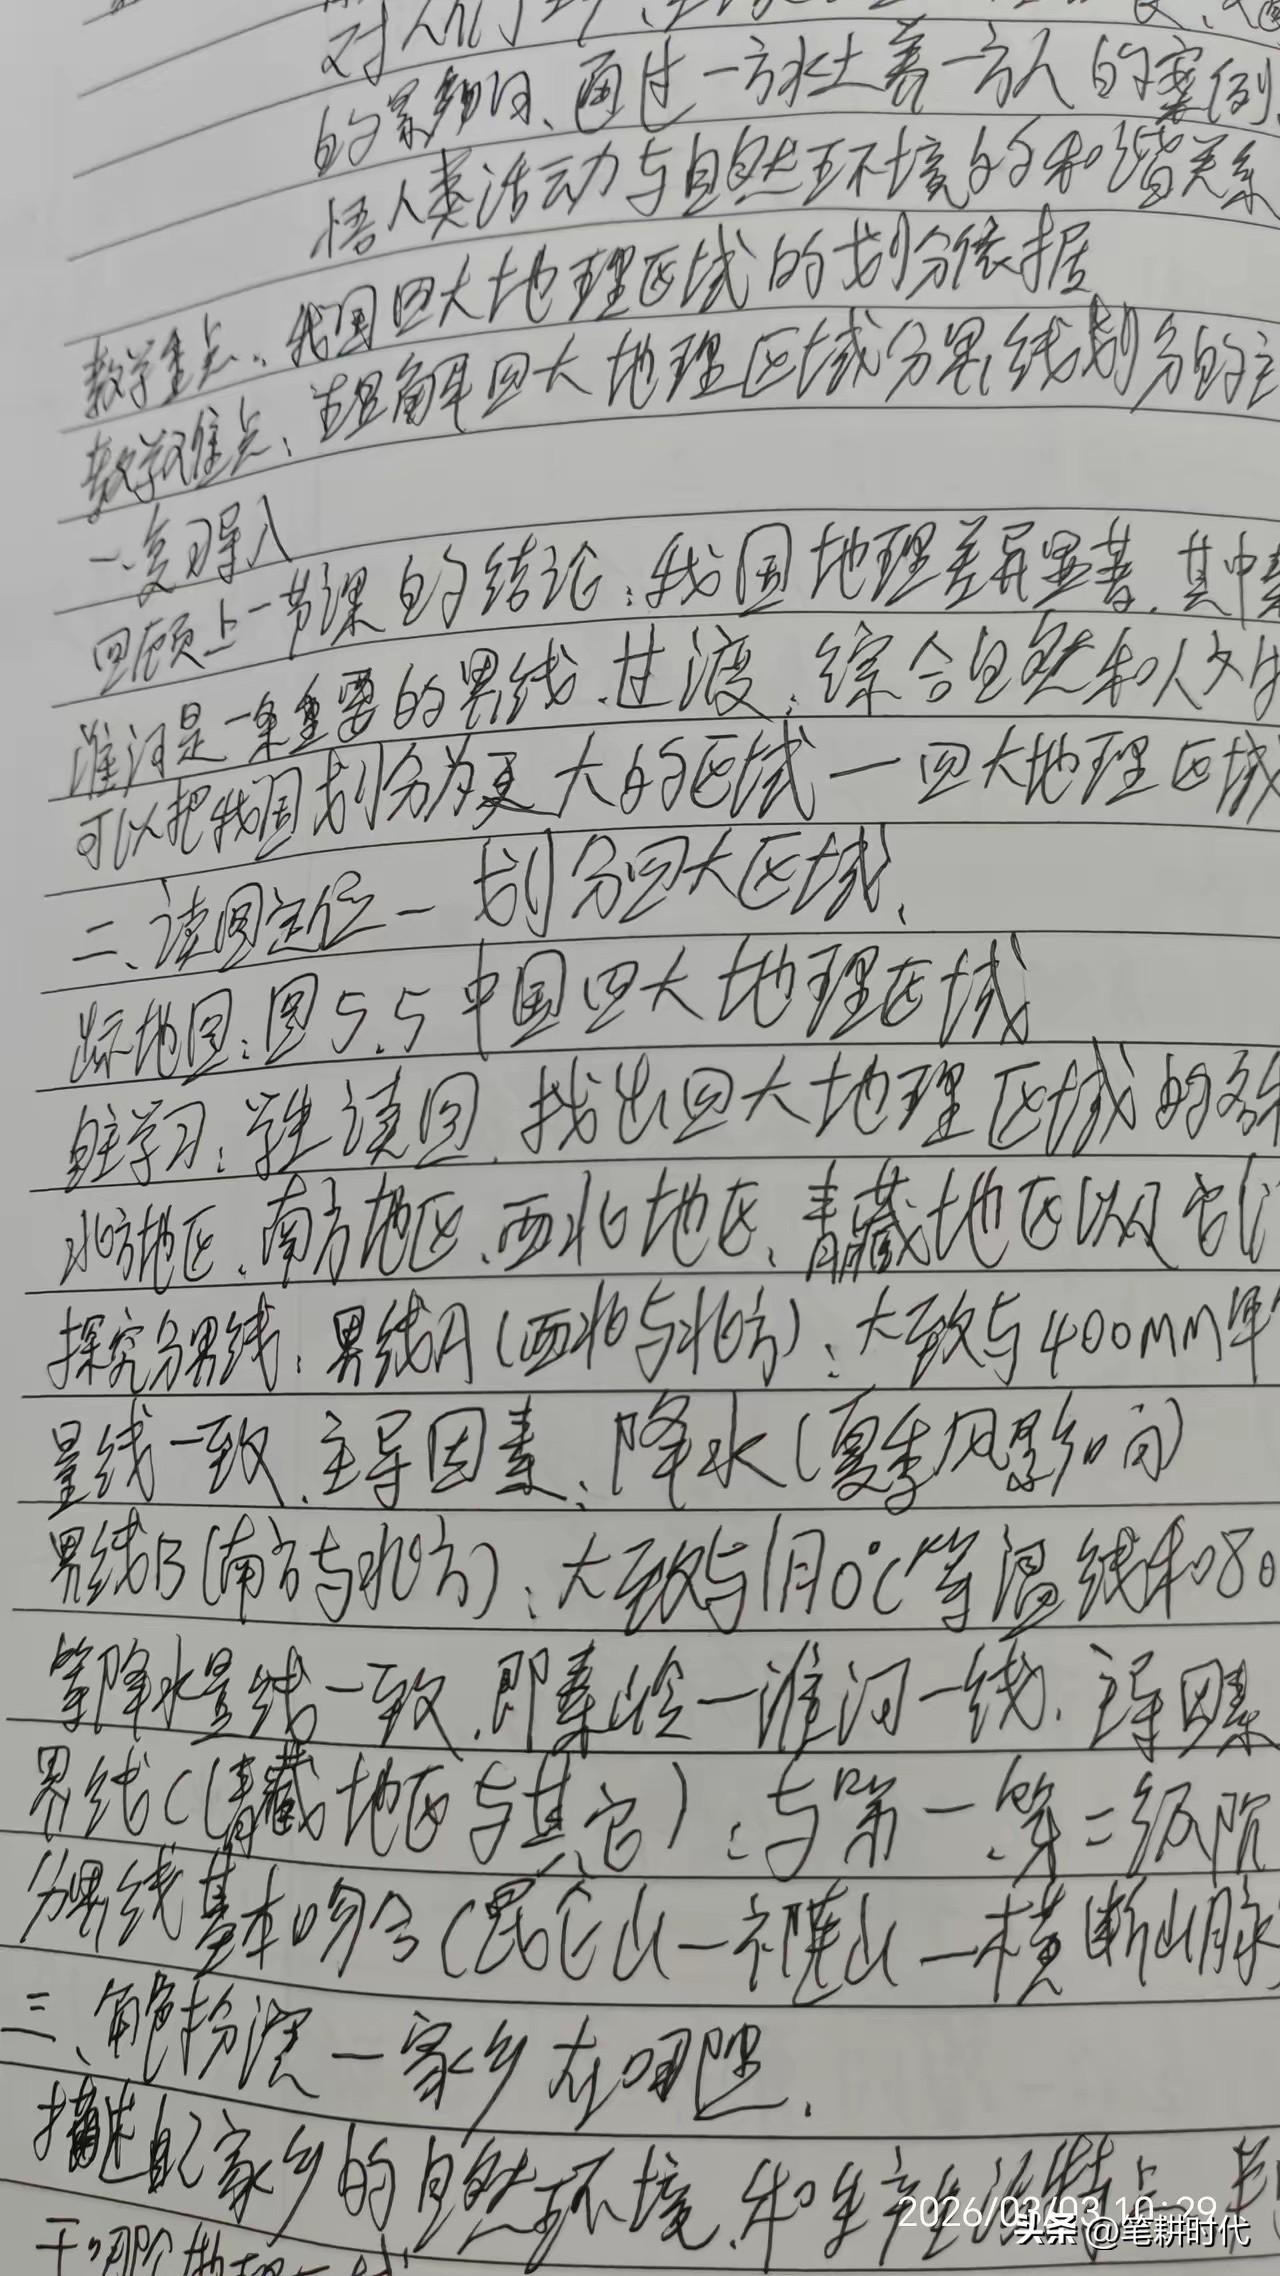 对人们
的影响、通过一方水土养一方人的案例、
悟人类活动与自然环境的和谐关系
教学重点：我国四大地理区域的划分依据
教学难点：理解四大地理区域分界线划分的主
一、复习导入
回顾上一节课的结论：我国地理差异显著，其中秦
淮河是一条重要的界线，过渡：综合自然和人文
可以把我国划分为更大的区域—四大地理区域
二、读图定位—划分四大区域、
出示地图：图5.5中国四大地理区域
自主学习：学生读图，找出四大地理区域的名称
北方地区、南方地区、西北地区、青藏地区以及它们
探究分界线：界线A(西北与北方)：大致与400mm
量线一致，主导因素：降水(夏季风影响)
界线B(南方与北方)：大致与1月0℃等温线和80
等降水量线一致，即秦岭—淮河一线，主导因素
界线C(青藏地区与其它)：与第一、第二级阶
分界线基本吻合(昆仑山—祁连山—横断山脉
三、角色扮演—家乡在哪里.
描述自己家乡的自然环境，和生产生活特点，
于哪个地理区域
2026/03/03 10:29
头条 @笔耕时代